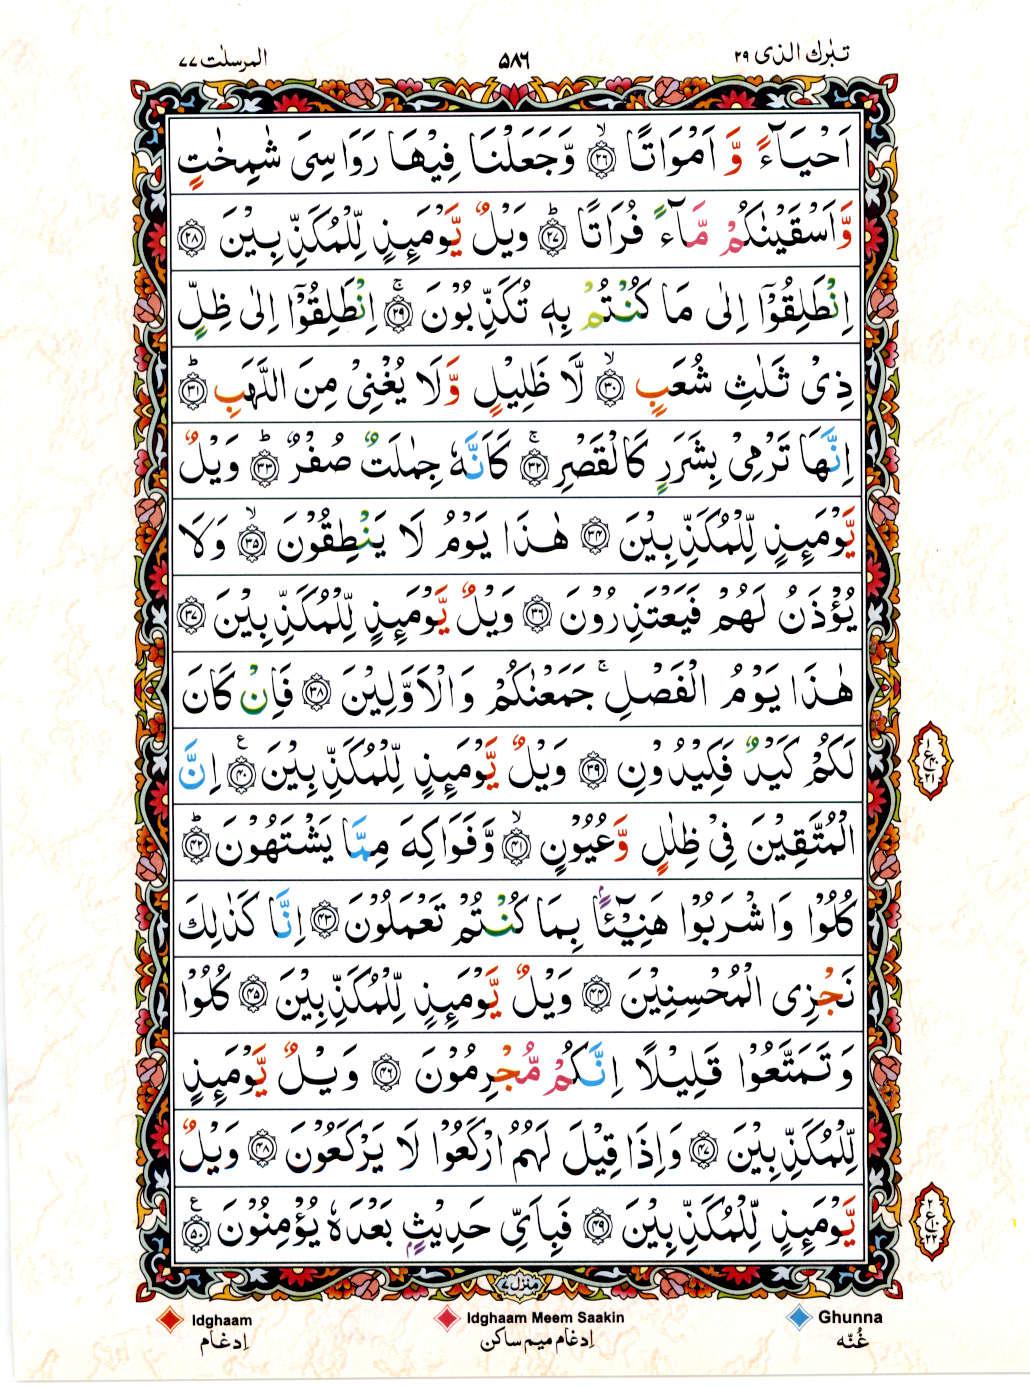 تبٰرك الذی ۲۹ ۵۸۶ المرسلٰت ۷۷
اَحْيَآءً وَّ اَمْوَاتًا ۙ‏﴿۲۶﴾ وَّجَعَلْنَا فِيْهَا رَوَاسِىَ شٰمِخٰتٍ
وَّاَسْقَيْنٰكُمْ مَّآءً فُرَاتًا ؕ‏﴿۲۷﴾ وَيْلٌ يَّوْمَئِذٍ لِّلْمُكَذِّبِيْنَ ﴿۲۸﴾
اِنْطَلِقُوْۤا اِلٰى مَا كُنْتُمْ بِهٖ تُكَذِّبُوْنَ ۚ‏﴿۲۹﴾ اِنْطَلِقُوْۤا اِلٰى ظِلٍّ
ذِىْ ثَلٰثِ شُعَبٍ ۙ‏﴿۳۰﴾ لَّا ظَلِيْلٍ وَّلَا يُغْنِىْ مِنَ اللَّهَبِ ؕ‏﴿۳۱﴾
اِنَّهَا تَرْمِىْ بِشَرَرٍ كَالْقَصْرِ ۚ‏﴿۳۲﴾ كَاَنَّهٗ جِمٰلَتٌ صُفْرٌ ؕ‏﴿۳۳﴾ وَيْلٌ
يَّوْمَئِذٍ لِّلْمُكَذِّبِيْنَ ﴿۳۴﴾ هٰذَا يَوْمُ لَا يَنْطِقُوْنَ ۙ‏﴿۳۵﴾ وَلَا
يُؤْذَنُ لَهُمْ فَيَعْتَذِرُوْنَ ﴿۳۶﴾ وَيْلٌ يَّوْمَئِذٍ لِّلْمُكَذِّبِيْنَ ﴿۳۷﴾
هٰذَا يَوْمُ الْفَصْلِ ۚ جَمَعْنٰكُمْ وَالْاَوَّلِيْنَ ﴿۳۸﴾ فَاِنْ كَانَ
لَكُمْ كَيْدٌ فَكِيْدُوْنِ ﴿۳۹﴾ وَيْلٌ يَّوْمَئِذٍ لِّلْمُكَذِّبِيْنَ ﴿۴۰﴾ ع اِنَّ
الْمُتَّقِيْنَ فِىْ ظِلٰلٍ وَّعُيُوْنٍ ۙ‏﴿۴۱﴾ وَّفَوَاكِهَ مِمَّا يَشْتَهُوْنَ ؕ‏﴿۴۲﴾
كُلُوْا وَاشْرَبُوْا هَنِيْٓــًٔا بِمَا كُنْتُمْ تَعْمَلُوْنَ ﴿۴۳﴾ اِنَّا كَذٰلِكَ
نَجْزِى الْمُحْسِنِيْنَ ﴿۴۴﴾ وَيْلٌ يَّوْمَئِذٍ لِّلْمُكَذِّبِيْنَ ﴿۴۵﴾ كُلُوْا
وَتَمَتَّعُوْا قَلِيْلًا اِنَّكُمْ مُّجْرِمُوْنَ ﴿۴۶﴾ وَيْلٌ يَّوْمَئِذٍ
لِّلْمُكَذِّبِيْنَ ﴿۴۷﴾ وَاِذَا قِيْلَ لَهُمُ ارْكَعُوْا لَا يَرْكَعُوْنَ ﴿۴۸﴾ وَيْلٌ
يَّوْمَئِذٍ لِّلْمُكَذِّبِيْنَ ﴿۴۹﴾ فَبِاَىِّ حَدِيْثٍۢ بَعْدَهٗ يُؤْمِنُوْنَ ﴿۵۰﴾ ع
منزل ۷
Idghaam Idghaam Meem Saakin Ghunna
اِدغام اِدغام میم ساکن غُنّه